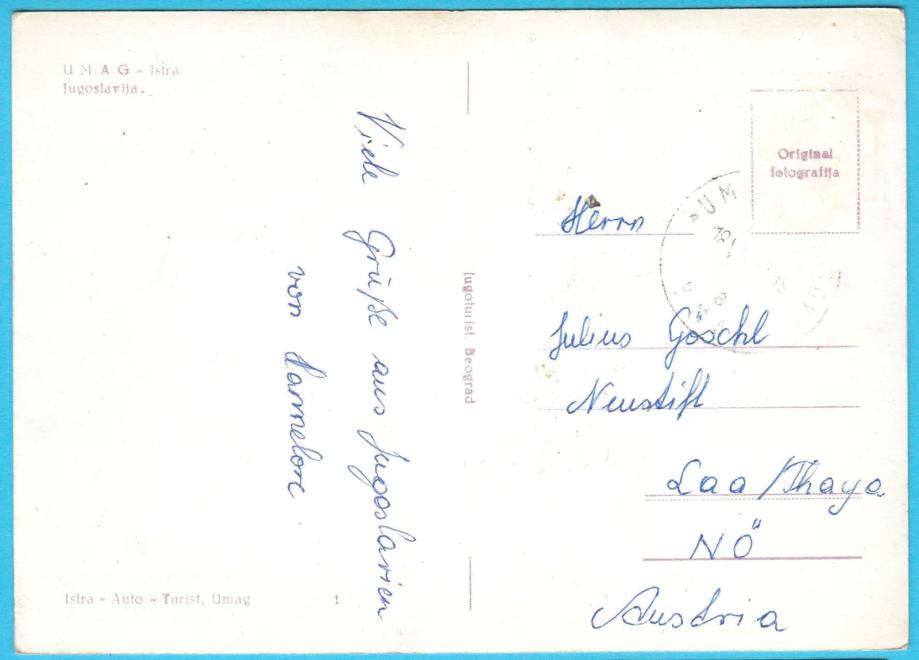 UMAG - Istra
Jugoslavija.
Viele Grüße aus Jugoslavien
von Hannelore
Jugoturist. Beograd
Original
fotografija
UM
Herrn
Julius Goschl
Neustift
Laa / Thaya
NÖ
Austria
Istra - Auto - Turist, Umag
1